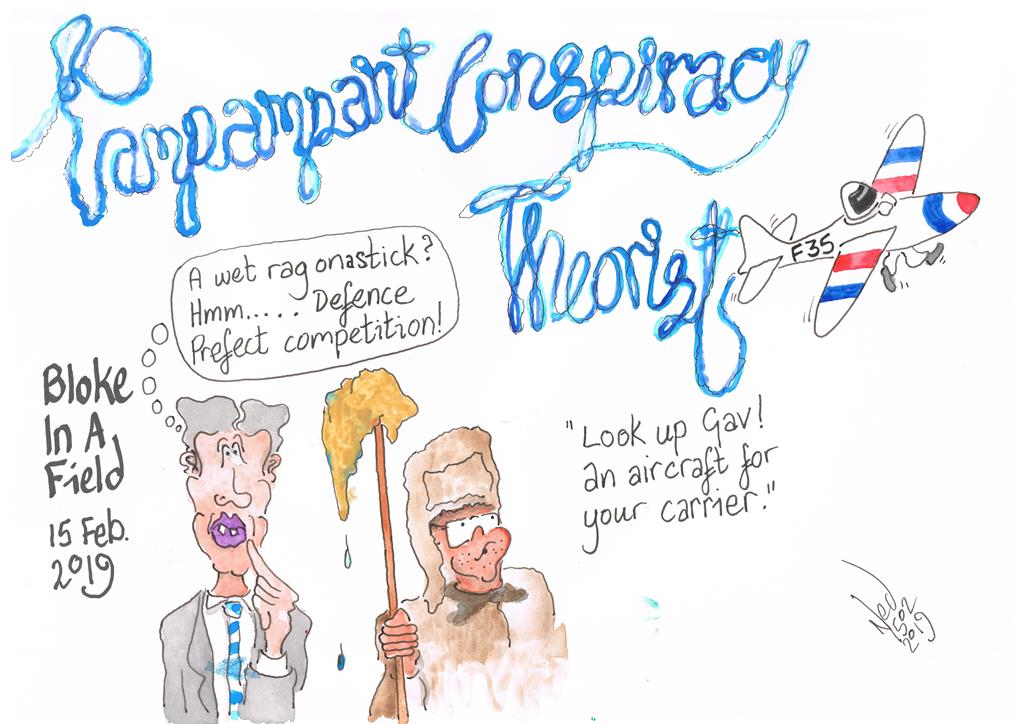 Rampampant Conspiracy
Theorist
F35
A wet rag onastick?
Hmm..... Defence
Prefect competition!
Bloke
In A
Field
15 Feb.
2019
"Look up Gav!
an aircraft for
your carrier."
1502
2019